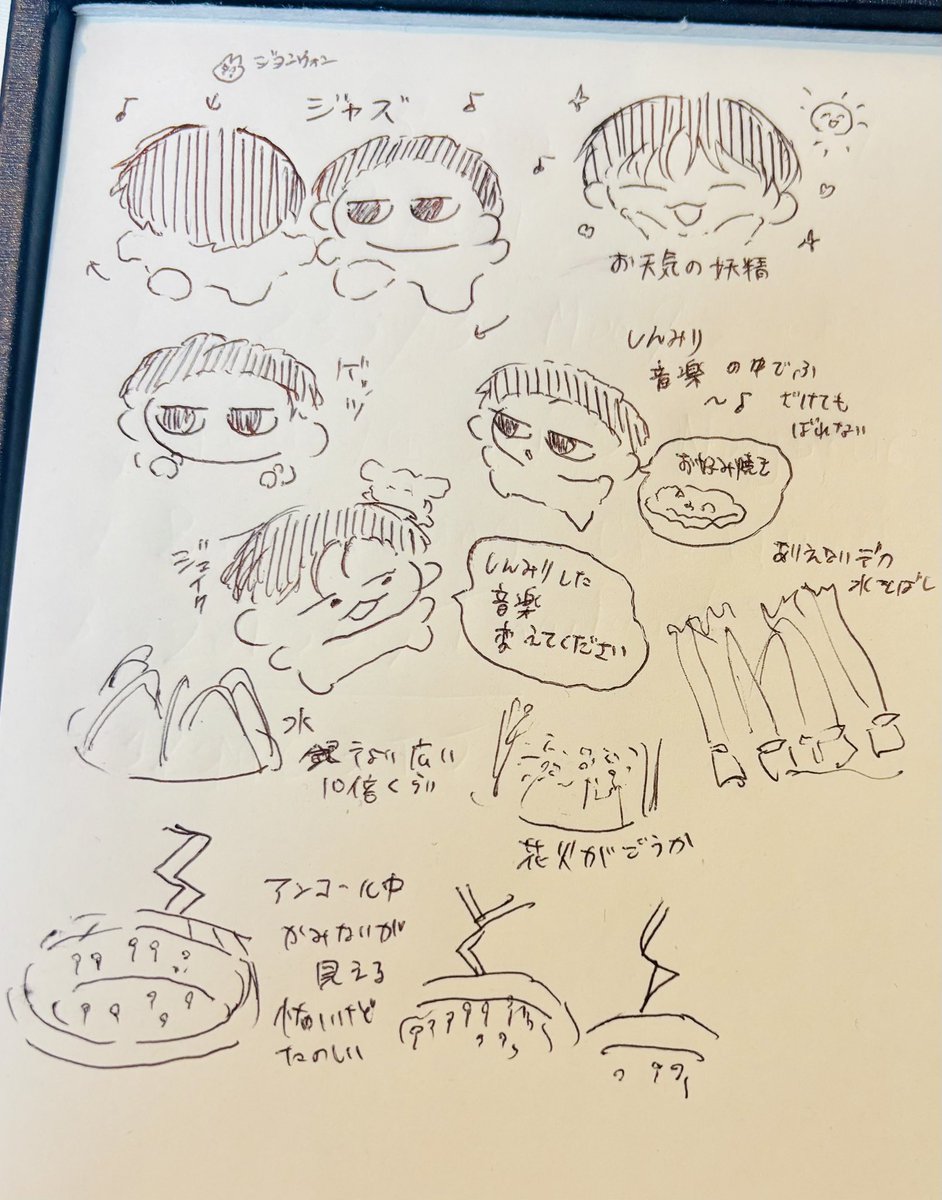 ジョンウォン
ジャズ
お天気の妖精
バッ
しんみり
音楽の中でふ
〜♪ だけても
ばれない
お好み焼き
ジェイク
しんみりした
音楽
変えてください
ありえないデカ
水とばし
水
えない広い
10倍くらい
花火がごうか
アンコール中
かみないが
見える
怖いけど
たのしい